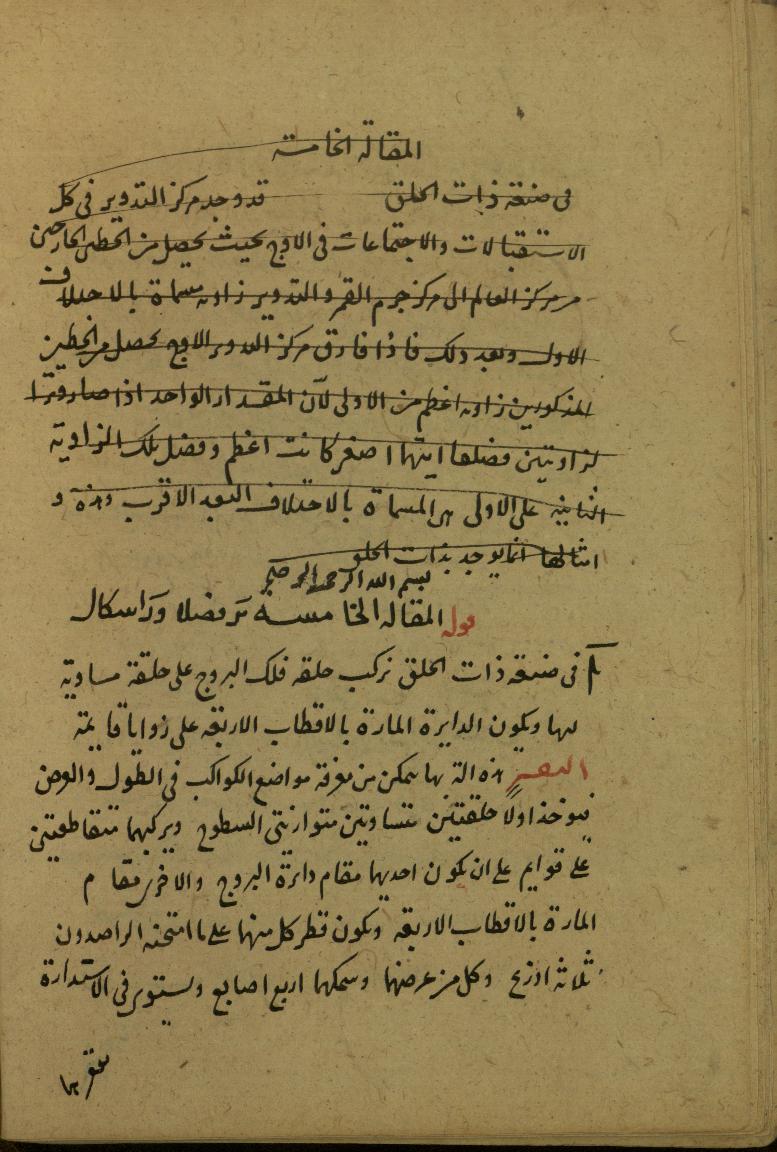 المقالة الخامسة
فى صنعة ذات الحلق قد وجد مركز التدوير فى كل
الاستقبالات والاجتماعات فى الاوج بحيث يحصل من الخطين الخارجين
من مركز العالم الى مركز جرم القمر والتدوير زاوية مسماة بالاختلاف
الاول وبعد ذلك فاذا فارق مركز التدوير الاوج يحصل من الخطين
المذكورين زاوية اعظم من الاولى لان المقدار الواحد اذا صار وترا
لزاويتين فضلعا ايتهما اصغر كانت اعظم وفضل تلك الزاوية
الثانية على الاولى هى المسماة بالاختلاف البعد الاقرب وهذه و
امثالها انما يوجد بذات الحلق
بسم الله الرحمن الرحيم
قوله المقالة الخامسة فصلا اشكال
آ فى صنعة ذات الحلق نركب حلقة فلك البروج على حلقة مساوية
لها ويكون الدايرة المارة بالاقطاب الاربعة على زوايا قايمة
هذه الة بها يتمكن من معرفة مواضع الكواكب فى الطول والعرض
فيوخذ اولا حلقتين متساويتين متوازيتى السطوح ويركبهما متقاطعتين
على قوايم على ان يكون احديهما مقام دايرة البروج والاخرى مقام
المارة بالاقطاب الاربعة ويكون قطر كل منهما على ما امتحنه الراصدون
ثلاثة اذرع وكل من عرضهما وسمكهما اربع اصابع ويستوى فى الاستدارة